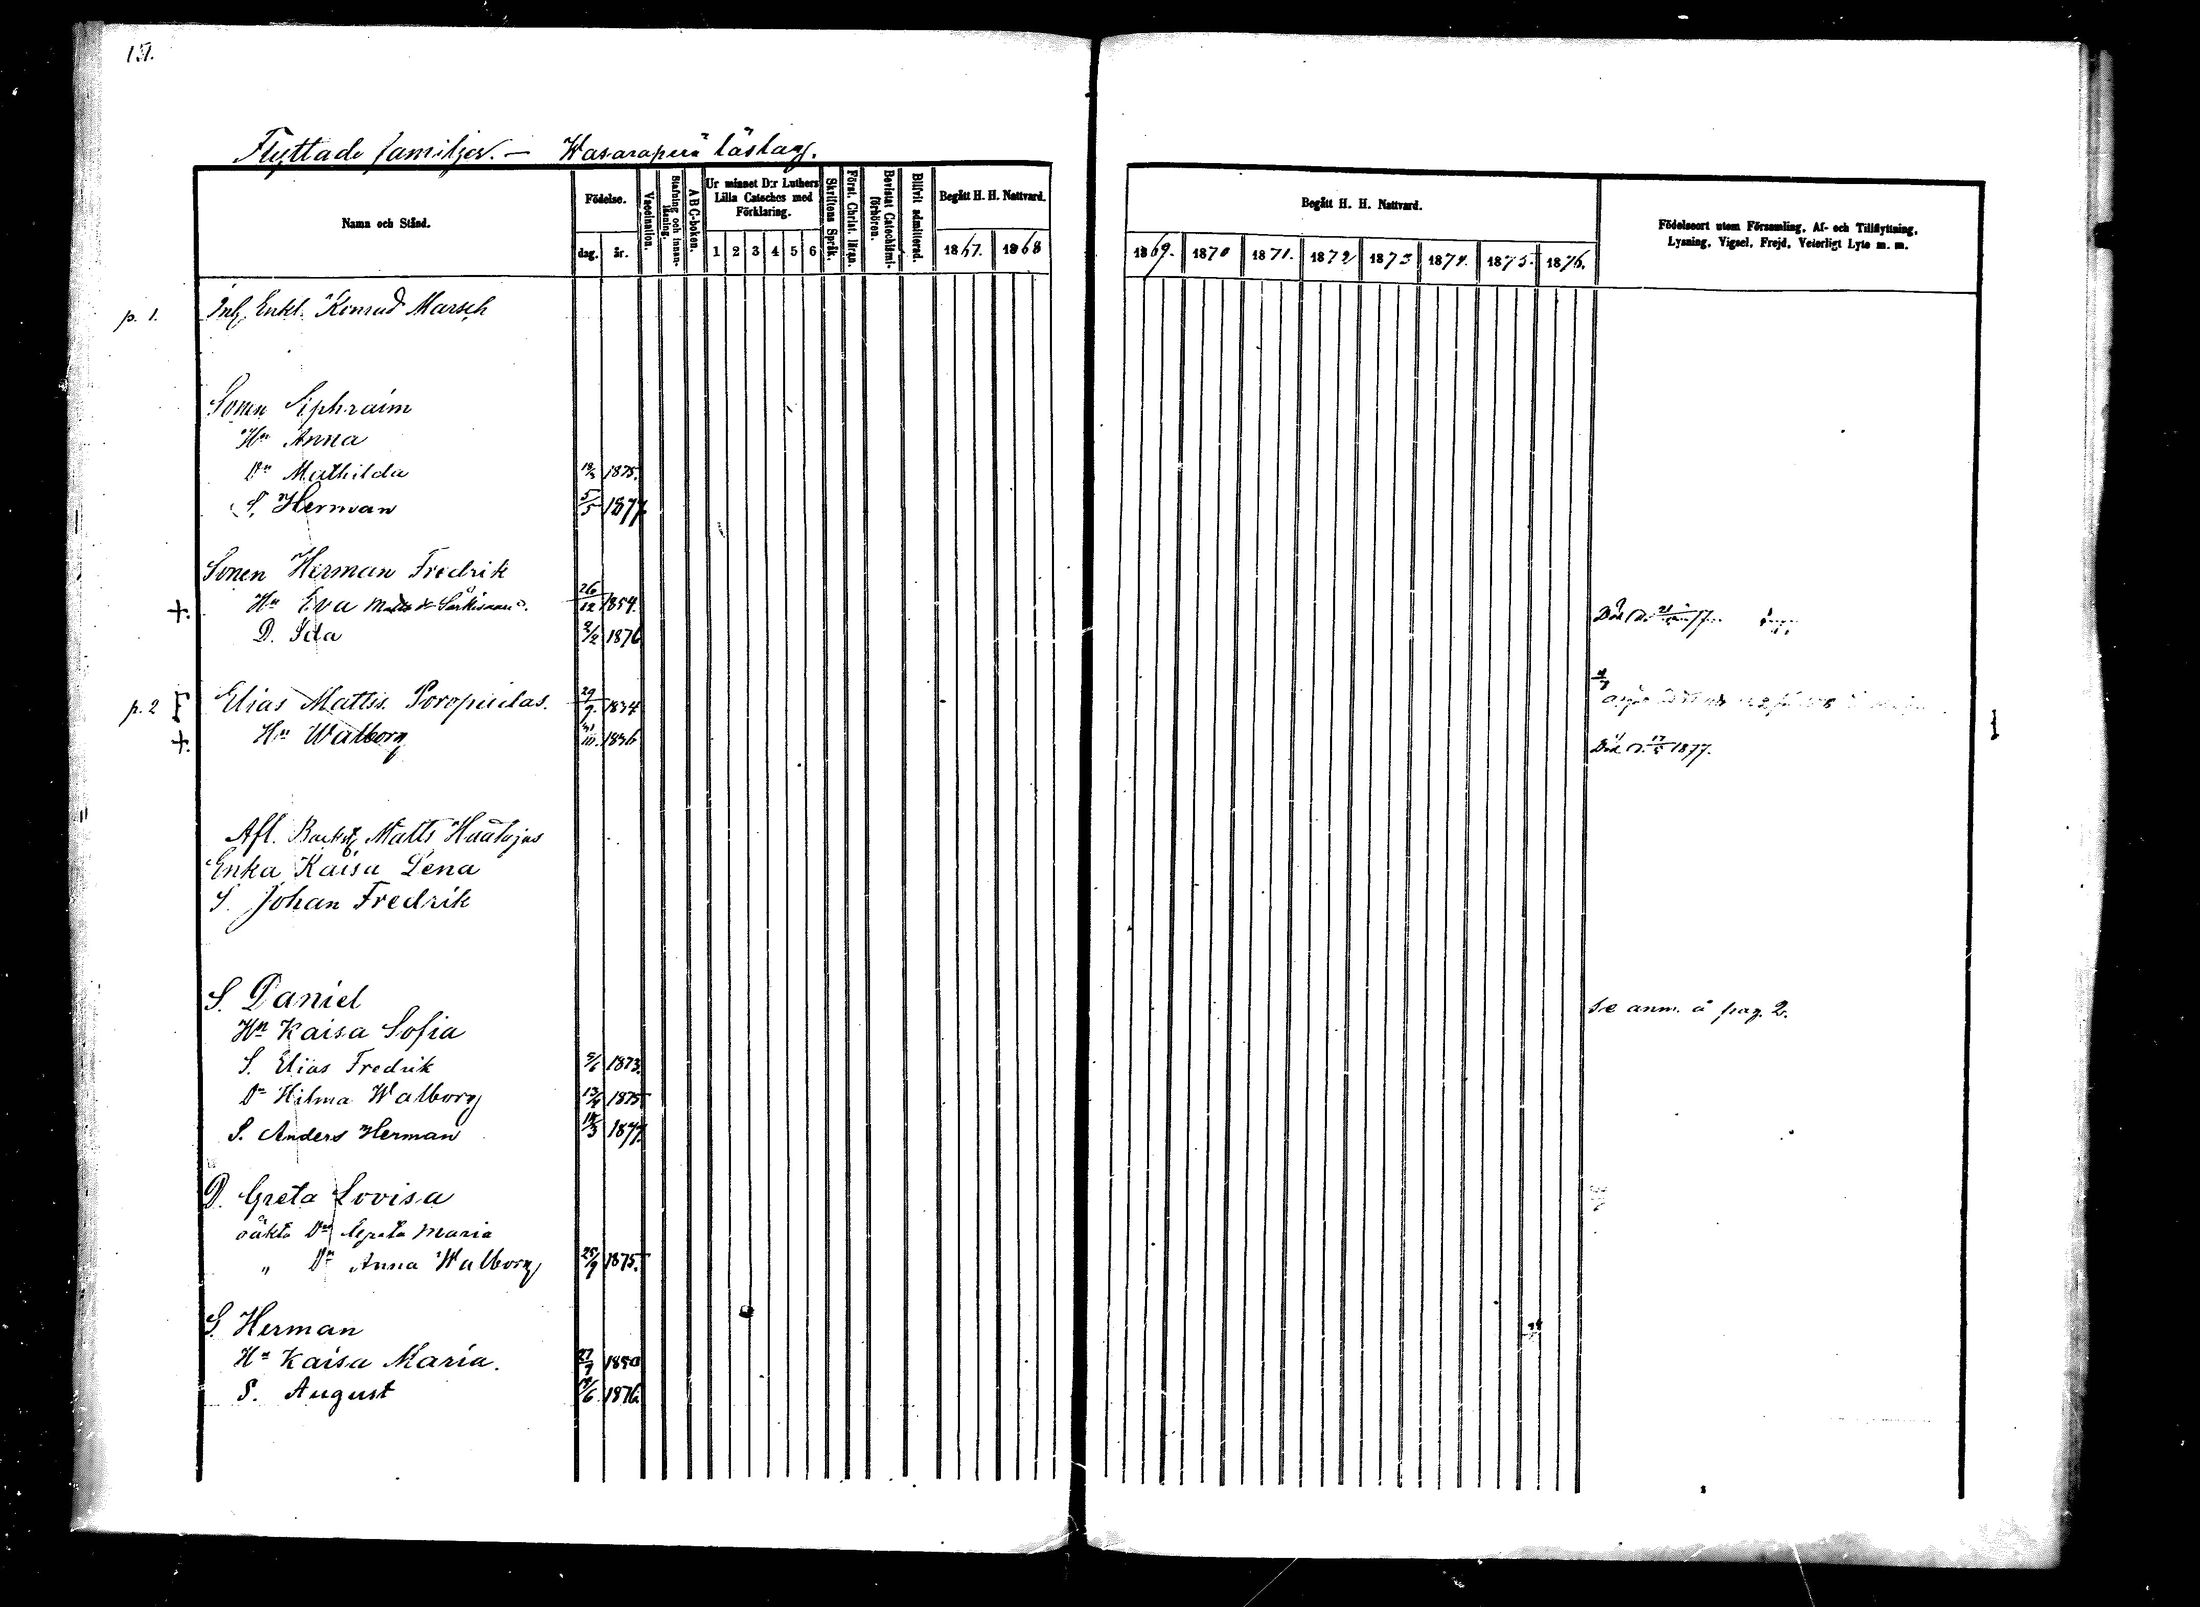 151.
Flyttade familjer. — Wasaraperä läslag.
Namn och Stånd.
Födelse.
dag. år.
Vaccination.
Stafning och innanläsning.
A B C-boken.
Ur minnet D:r Luthers Lilla Cateches med Förklaring.
1 2 3 4 5 6
Skriftens Språk.
Först. Christ. läran.
Bevistat Catechismiförhören.
Blifvit admitterad.
Begått H. H. Nattvard.
1867. 1868
Begått H. H. Nattvard.
1869. 1870 1871. 1872 1873 1874. 1875. 1876.
Födelseort utom Församling, Af- och Tillflyttning,
Lysning, Vigsel, Frejd, Veterligt Lyte m. m.
p. 1. Inh. Enkl. Konrad Marsch
Sonen Ephraim
Hu Anna
Dr Mathilda 1875.
S. Herman 5/5 1877
Sonen Herman Fredrik
+. Hu Eva 26/12 1854. Död
D. Ida 2/2 1876
p. 2 Elias Mattss. Poropudas. 29/9. 1834
+. Hu Walborg 1836 Död d. 17/5 1877.
Afl. Matts Hautajas
Enka Kaisa Lena
S. Johan Fredrik
S. Daniel Se anm. å pag. 2.
Hu Kaisa Sofia
S. Elias Fredrik 5/6 1873.
Dr Hilma Walborg 13/4 1875
S. Anders Herman 1877.
D. Greta Lovisa
oäkta Dr Greta Maria
" Dr Anna Walborg 25/9 1875.
S. Herman
Hu Kaisa Maria. 1850
S. August 1876.